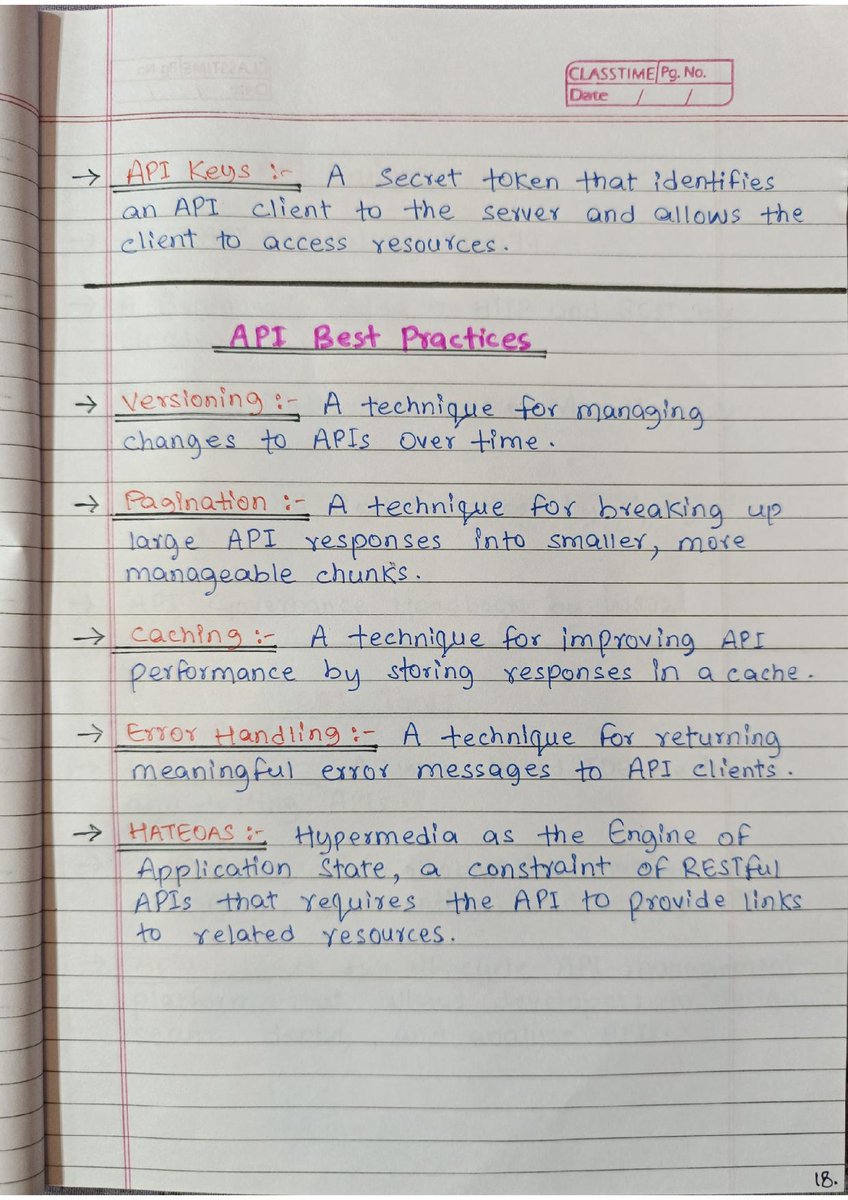 CLASSTIME Pg. No.
Date / /
→ API Keys :- A secret token that identifies
an API client to the server and allows the
client to access resources.
API Best Practices
→ Versioning :- A technique for managing
changes to APIs over time.
→ Pagination :- A technique for breaking up
large API responses into smaller, more
manageable chunks.
→ Caching :- A technique for improving API
performance by storing responses in a cache.
→ Error Handling :- A technique for returning
meaningful error messages to API clients.
→ HATEOAS :- Hypermedia as the Engine of
Application State, a constraint of RESTful
APIs that requires the API to provide links
to related resources.
18.